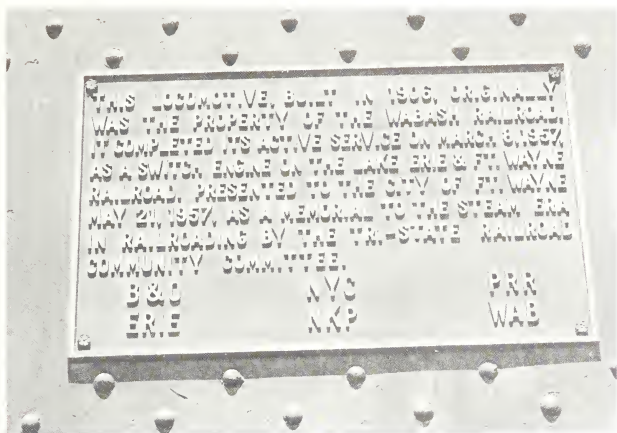 THIS LOCOMOTIVE, BUILT IN 1906, ORIGINALLY
WAS THE PROPERTY OF THE WABASH RAILROAD.
IT COMPLETED ITS ACTIVE SERVICE ON MARCH 8, 1957,
AS A SWITCH ENGINE ON THE LAKE ERIE & FT. WAYNE
RAILROAD. PRESENTED TO THE CITY OF FT. WAYNE
MAY 21, 1957, AS A MEMORIAL TO THE STEAM ERA
IN RAILROADING BY THE TRI-STATE RAILROAD
COMMUNITY COMMITTEE.
B&O NYC PRR
ERIE NKP WAB